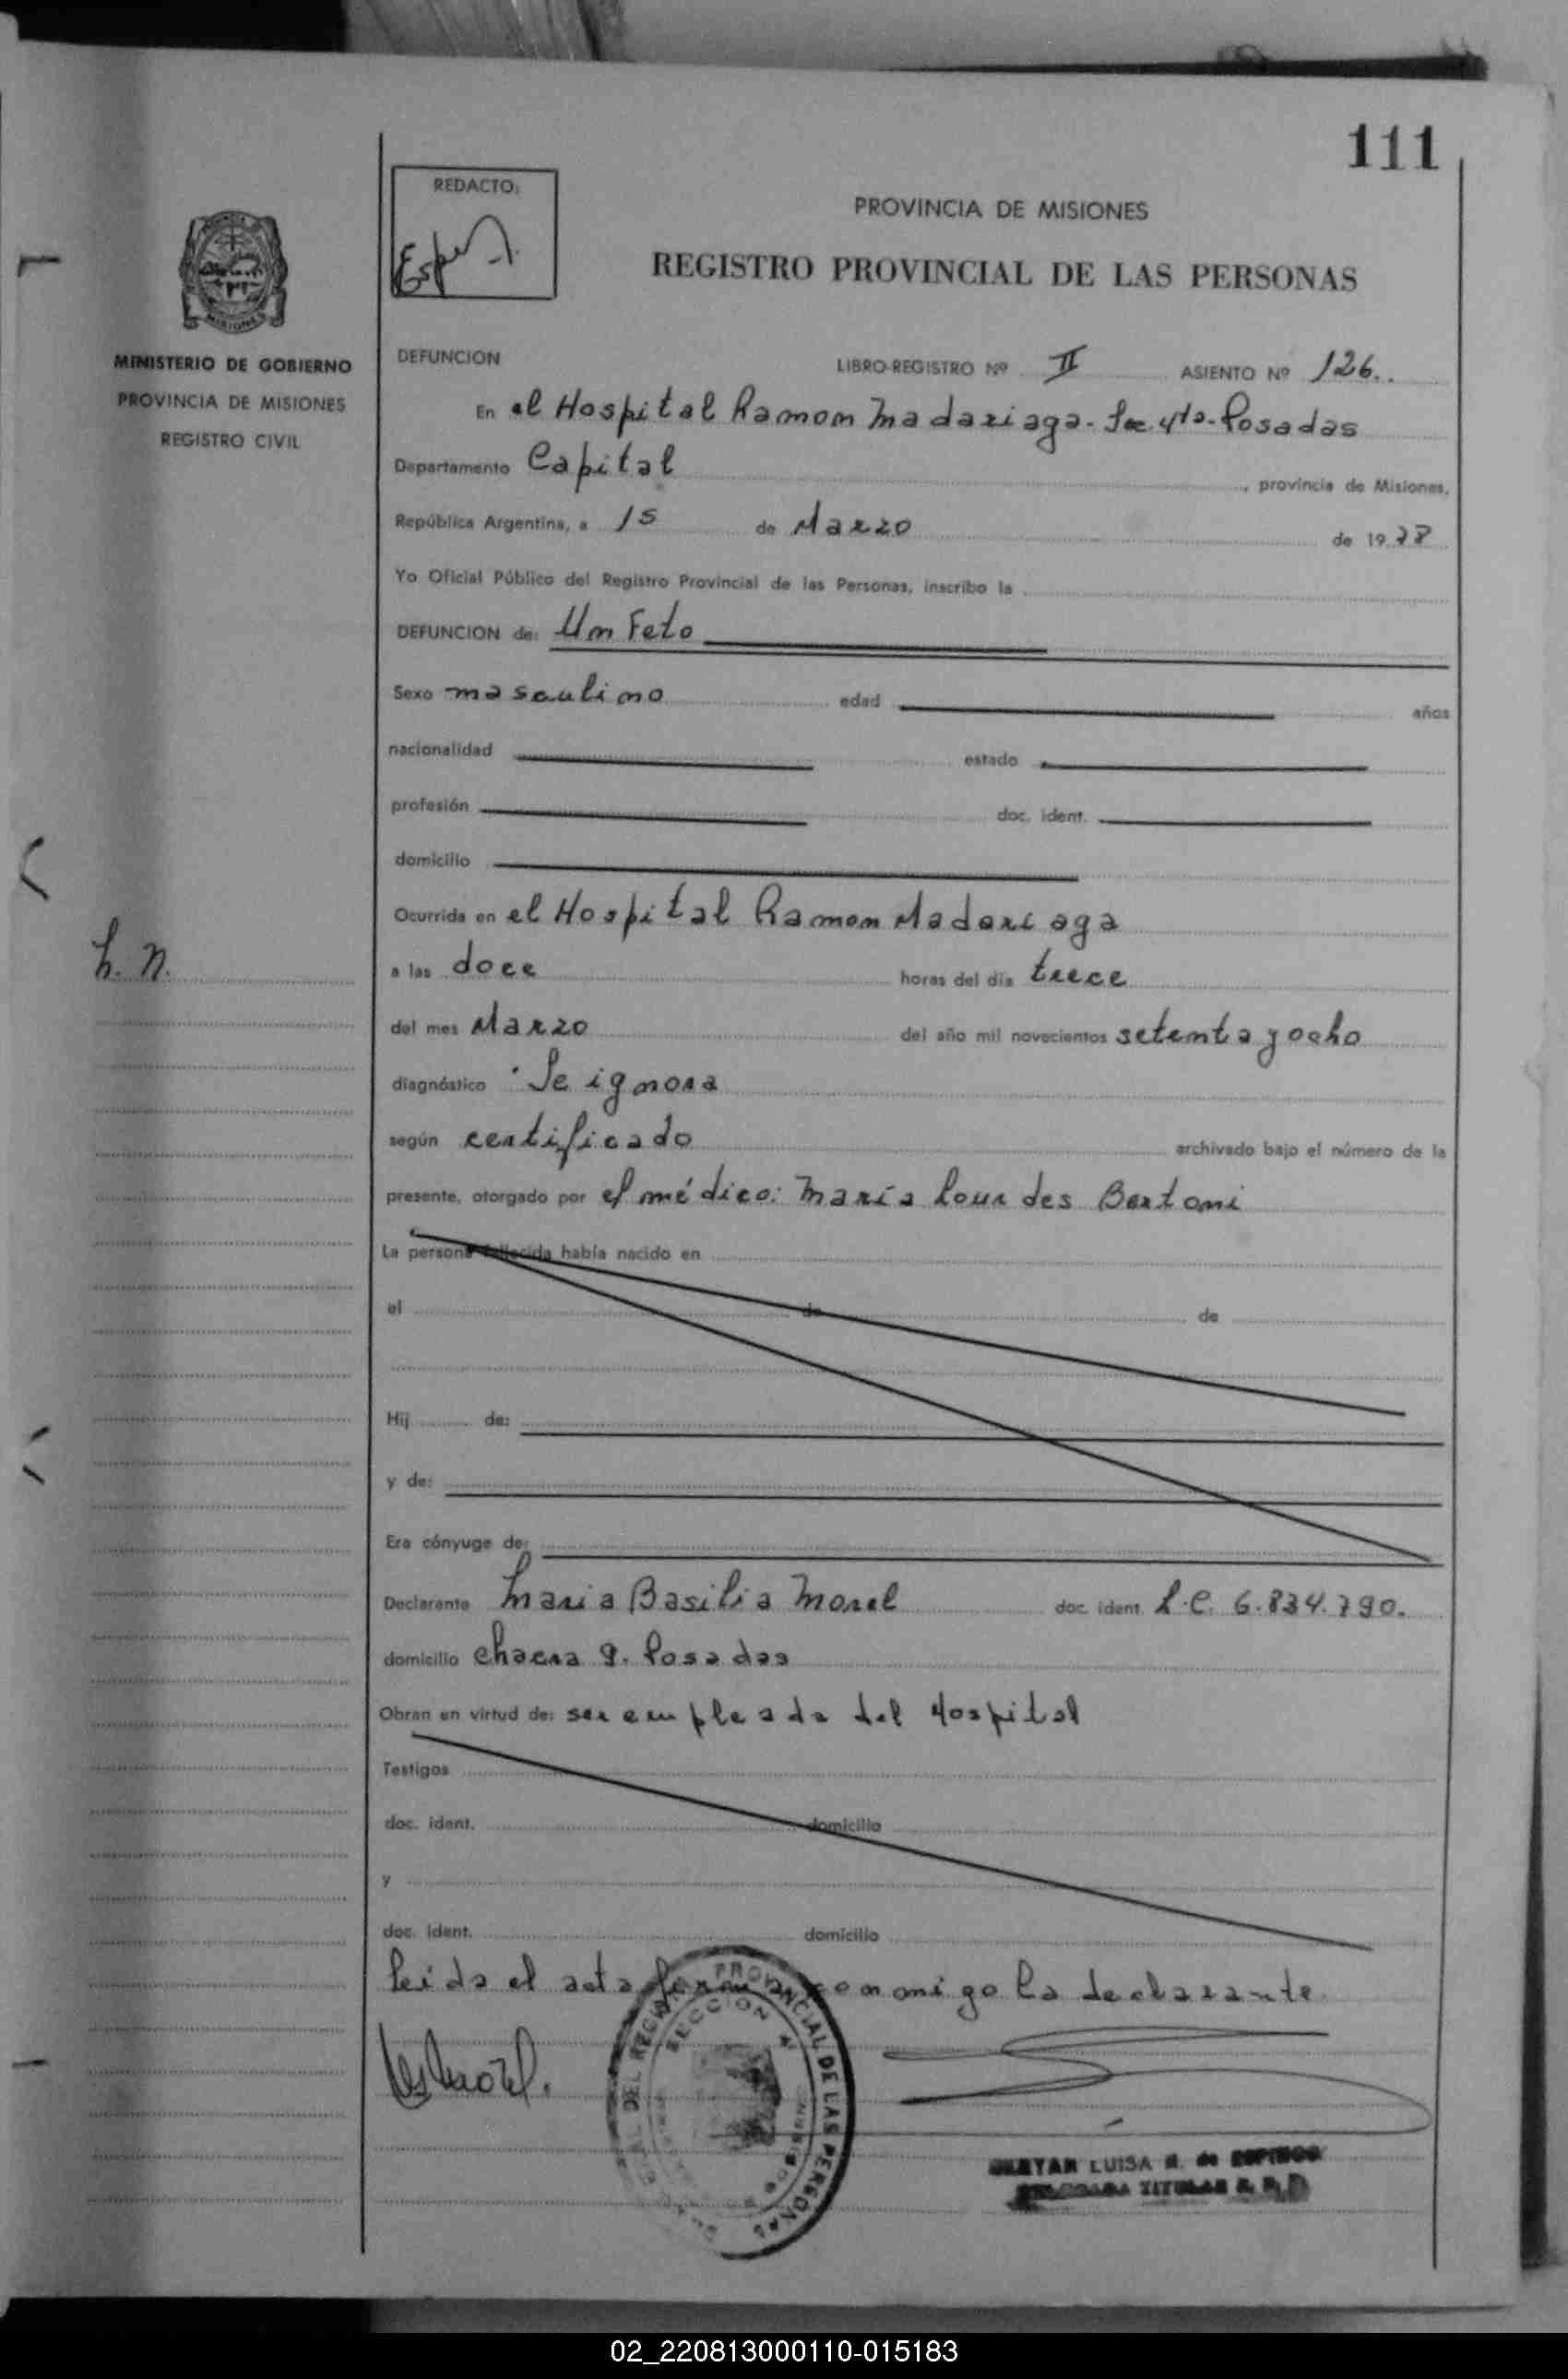 111
REDACTO:
PROVINCIA DE MISIONES
REGISTRO PROVINCIAL DE LAS PERSONAS
MISIONES
MINISTERIO DE GOBIERNO
PROVINCIA DE MISIONES
REGISTRO CIVIL
DEFUNCION LIBRO-REGISTRO Nº II ASIENTO Nº 126..
En el Hospital Ramon Madariaga - Sec 4ta - Posadas
Departamento Capital , provincia de Misiones,
República Argentina, a 15 de Marzo de 1978
Yo Oficial Público del Registro Provincial de las Personas, inscribo la
DEFUNCION de: Un Feto
Sexo masculino edad años
nacionalidad estado
profesión doc. ident.
domicilio
Ocurrida en el Hospital Ramon Madariaga
h. n.
a las doce horas del día trece
del mes Marzo del año mil novecientos setenta y ocho
diagnóstico Se ignora
según certificado archivado bajo el número de la
presente, otorgado por el médico: María Lourdes Bertoni
La persona fallecida había nacido en
el de de
Hij de:
y de:
Era cónyuge de:
Declarante Maria Basilia Morel doc. ident. L.C. 6.834.790.
domicilio chacra 9. Posadas
Obran en virtud de: ser empleada del Hospital
Testigos
doc. ident. domicilio
y
doc. ident. domicilio
Leida el acta firma conmigo la declarante.
PROVINCIAL DE LAS PERSONAS
SECCION 4
LUISA
TITULAR
02_220813000110-015183